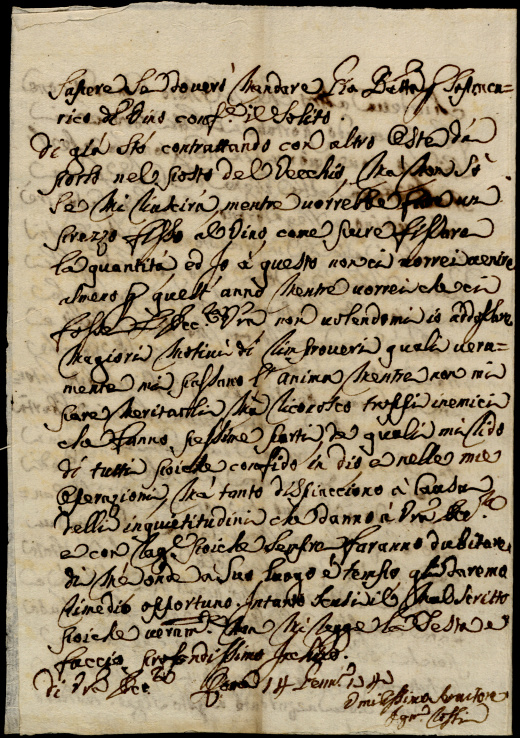 sapere se doverò mandare Gio Batta p Sapencu=
rico del Vino conf.e il Solito.
Di già stò contrattando con altro Oste da
porlo nel posto del Vecchio, Mà non sò
se mi riuscirà, mentre vorrebbe fare un
prezzo fisso al Vino, come pure fissare
la quantità ed Io à questo non ci vorrei venire
almeno p quest'anno mentre vorrei che ci
fosse Ecc.za Vra non volendomi io addossare
Magiori Motivi di rimproveri quali vera=
mente mi passano l'anima Mentre non mi
pare meritarli, Mà Conosco troppi inemici
che fanno pessime parti de quali mi rido
di tutti poiche confido in dio e nelle mie
Operazioni, Mà tanto dispiacciono à Causa
delli inquietitudini che danno à Vra Ecc.za
e con rag.e poiche sempre faranno dubitare
di Mè onde à suo luogo è tempo gli daremo
rimedio opportuno. Intanto scusi il Mal Scritto
poiche veram.te non mi regge la Testa e
faccio profondissimo inchino.
di Vra Ecc.za 14 Genn.o
Umilissimo Servitore